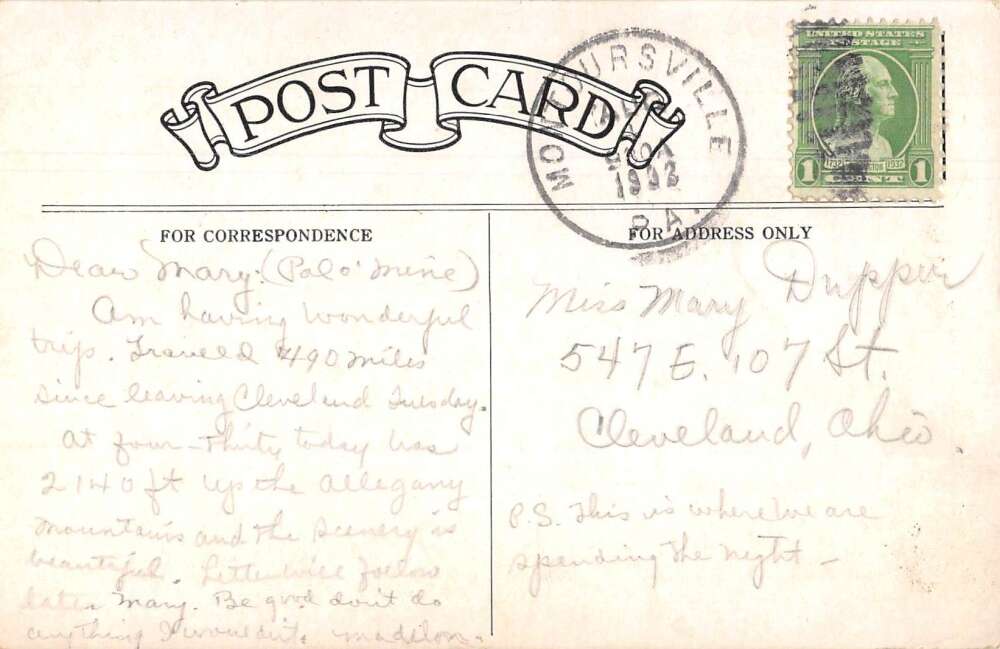 POST CARD
MONTOURSVILLE
1932
PA.
UNITED STATES
POSTAGE
1732 1932
1 CENT 1
FOR CORRESPONDENCE
FOR ADDRESS ONLY
Dear Mary: (Pal o' mine)
Am having wonderful
trip. Traveled 490 miles
since leaving Cleveland Tuesday.
At four-thirty today was
2140 ft up the Allegany
Mountains and the scenery is
beautiful. Letter will follow
later Mary. Be good don't do
anything I wouldn't. Madelon.
Miss Mary
547 E. 107 St.
Cleveland, Ohio.
P.S. This is where we are
spending the night -